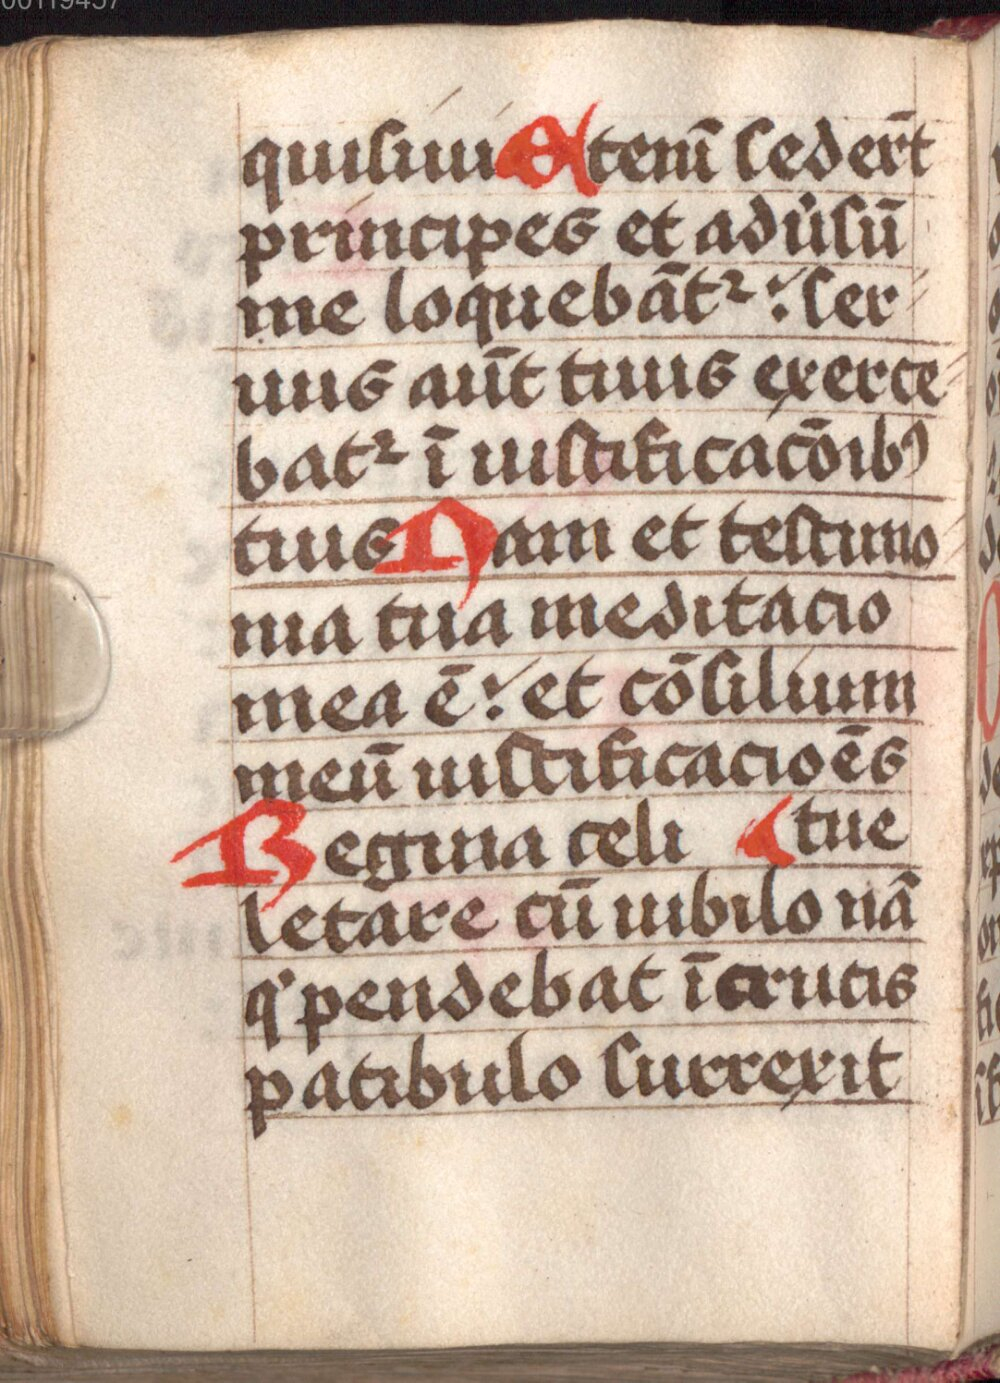 00119457
quisiui Etenī sederūt
principes et adūsū
me loquebāt᷑ : ser
uus aūt tuus exerce
bat᷑ ī iustificacōibꝯ
tuis Nam et testimo
nia tua meditacio
mea ē : et cōsilium
meū iustificacioēs
Regina celi tue
letare cū iubilo nā
q pendebat ī crucis
patibulo surrexit